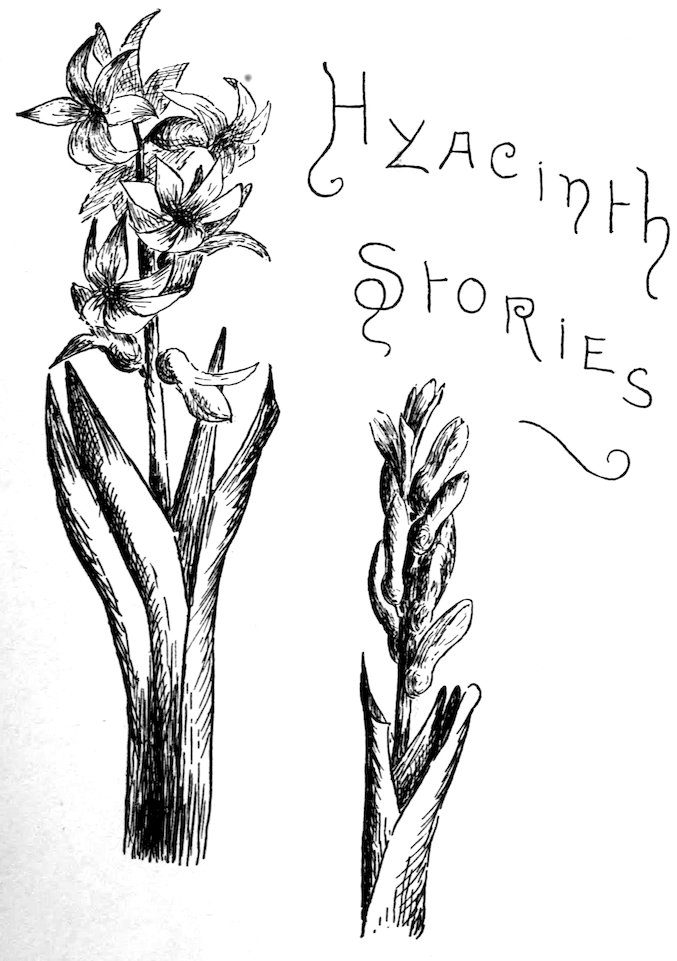 Hyacinth
Stories